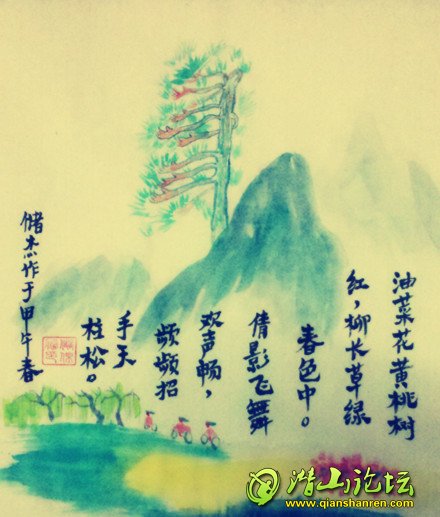 油菜花黄桃树
红，柳长草绿
春色中。
倩影飞舞
欢声畅，
频频招
手天
柱松。
储杰作于甲午春
潜山论坛
www.qianshanren.com